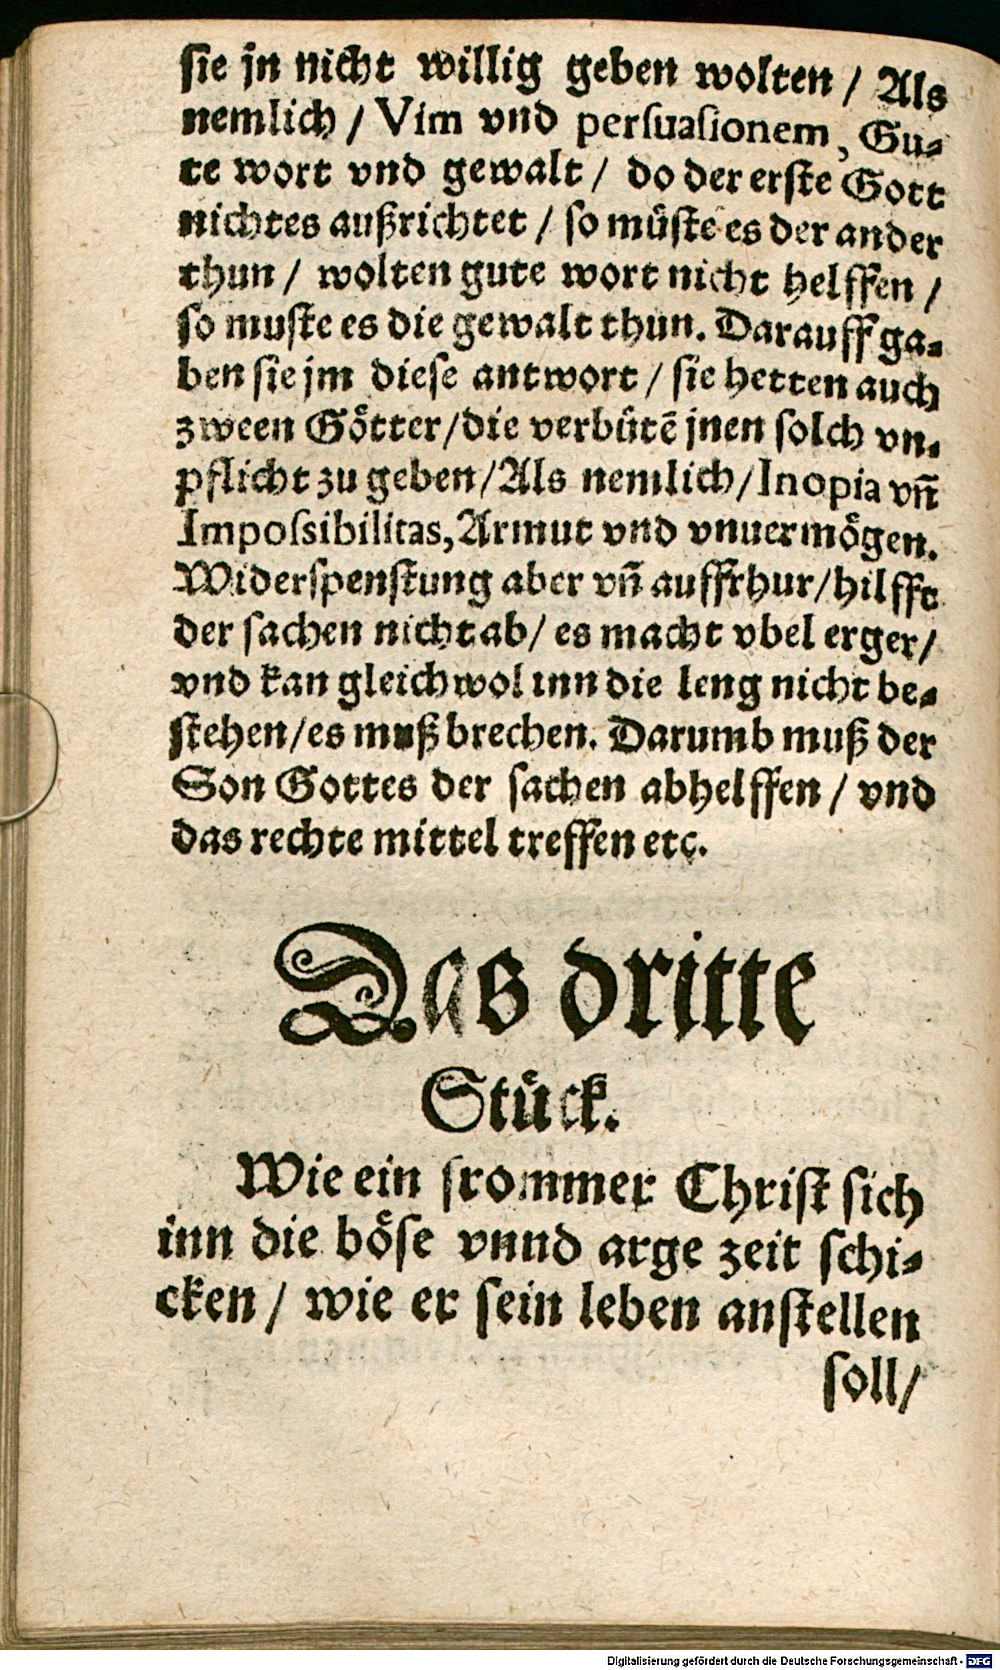 sie jn nicht willig geben wolten / Als
nemlich / Vim vnd persuasionem, Gu⸗
te wort vnd gewalt / do der erste Gott
nichtes außrichtet / so müste es der ander
thun / wolten gute wort nicht helffen /
so muste es die gewalt thun. Darauff ga⸗
ben sie jm diese antwort / sie hetten auch
zween Götter/die verbütē jnen solch vn⸗
pflicht zu geben/Als nemlich/Inopia vn̄
Impossibilitas, Armut vnd vnuermögen.
Widerspenstung aber vn̄ auffrhur/hilfft
der sachen nicht ab/ es macht vbel erger/
vnd kan gleichwol inn die leng nicht be⸗
stehen/es muß brechen. Darumb muß der
Son Gottes der sachen abhelffen / vnd
das rechte mittel treffen etc.
Das dritte
Stück.
Wie ein frommer Christ sich
inn die böse vnnd arge zeit schi⸗
cken / wie er sein leben anstellen
soll/
Digitalisierung gefördert durch die Deutsche Forschungsgemeinschaft - DFG